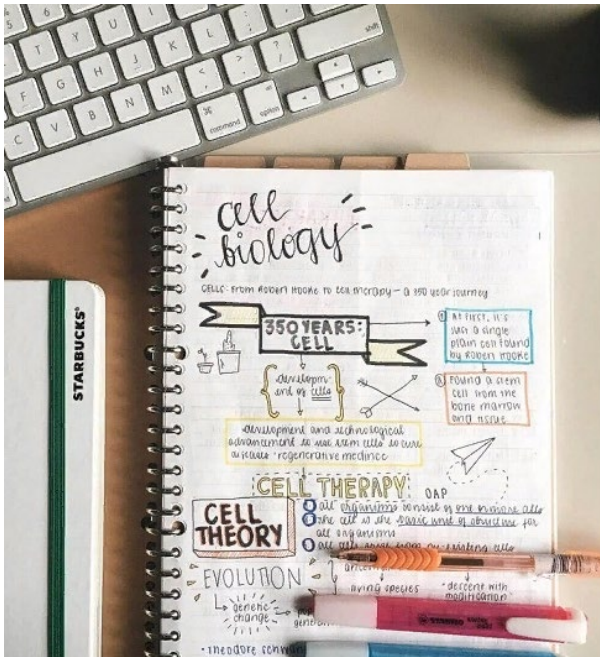 T Y U I O P
shift
F G H J K L
C V B N M < , > . ? /
⌘ command
option
STARBUCKS
cell
biology
CELLS: From Robert Hooke to cell therapy - a 350 year journey
350 YEARS:
CELL
developm-
ent of cells
① At first, it's
just a single
plain cell found
by Robert Hooke
② Found a stem
cell from the
bone marrow
and tissue
development and technological
advancement to use stem cells to cure
diseases · regenerative medince
CELL THERAPY
OAP
CELL
THEORY
① all organisms consist of one or more cells
② the cell is the basic unit of structure for
all organisms
③ all cells arise from pre-existing cells
EVOLUTION
genetic
change
living species
· descent with
modification
STABILO
· Theodore Schwann